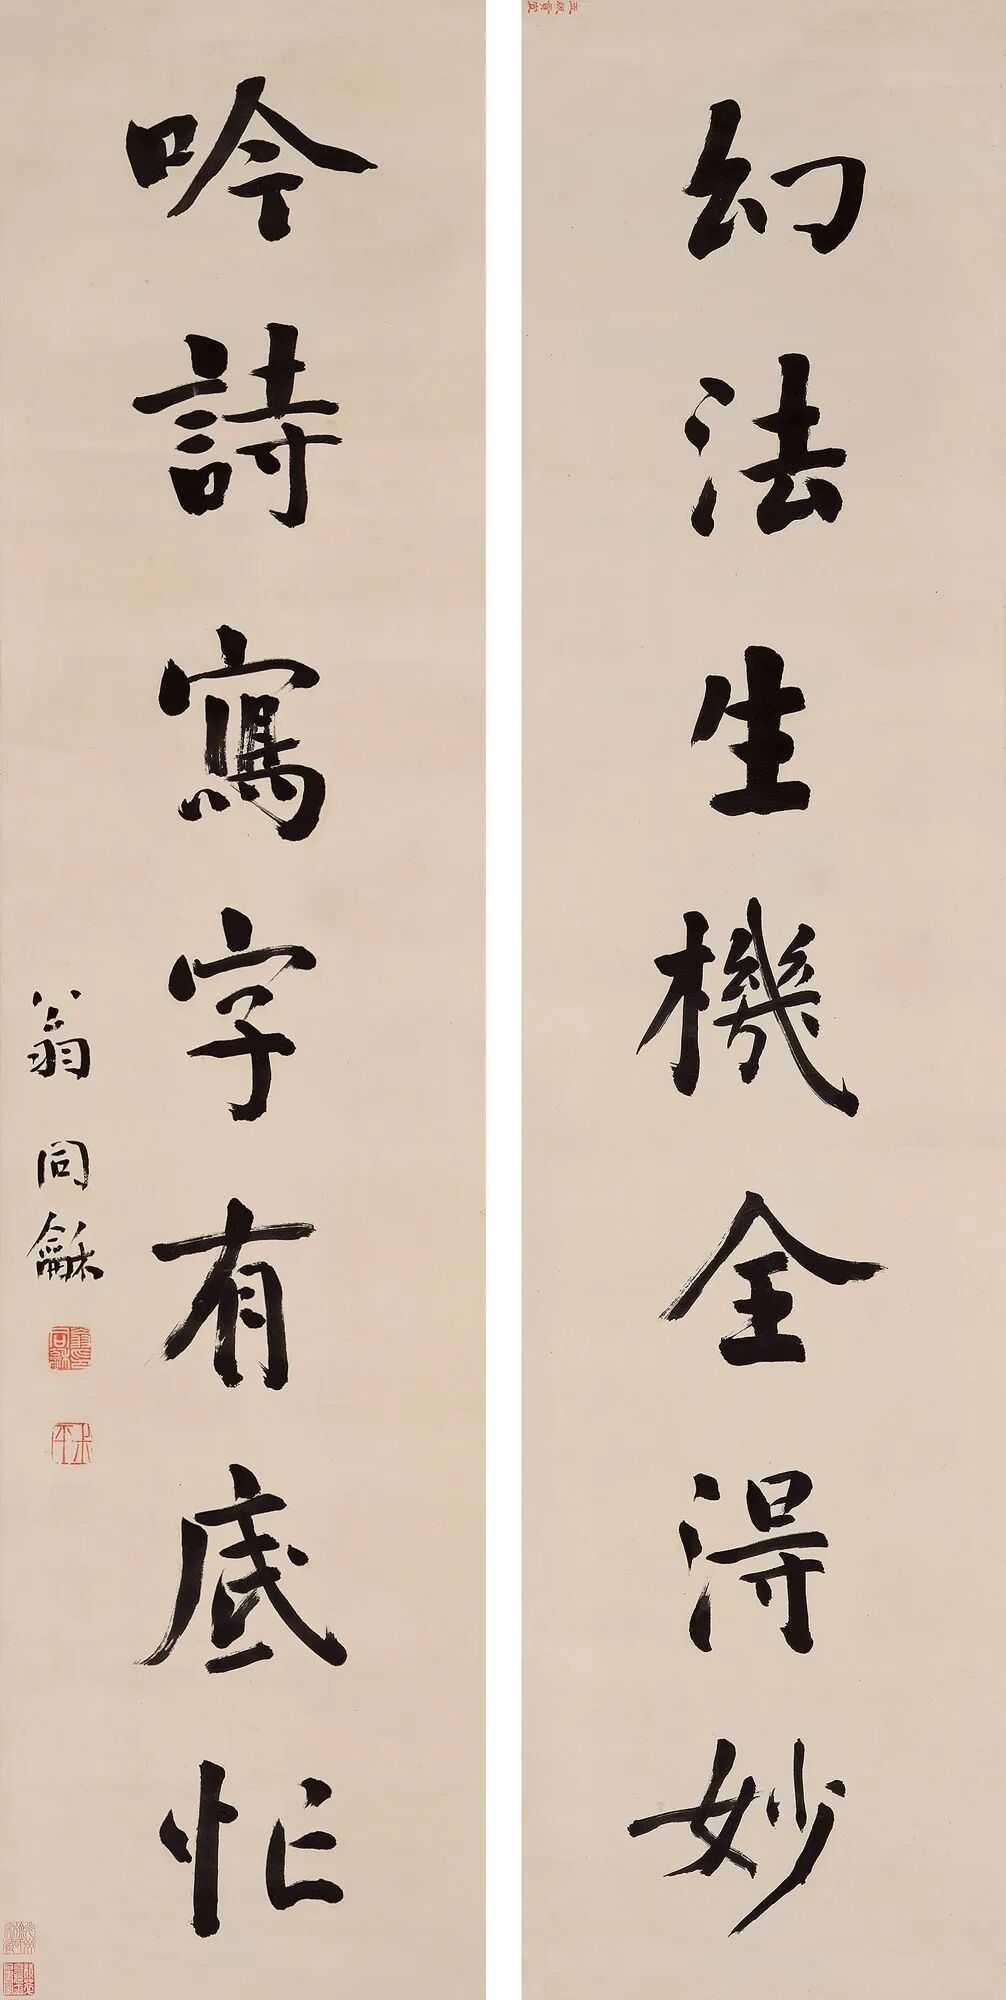 幻法生機全得妙
吟詩寫字有底忙
翁同龢